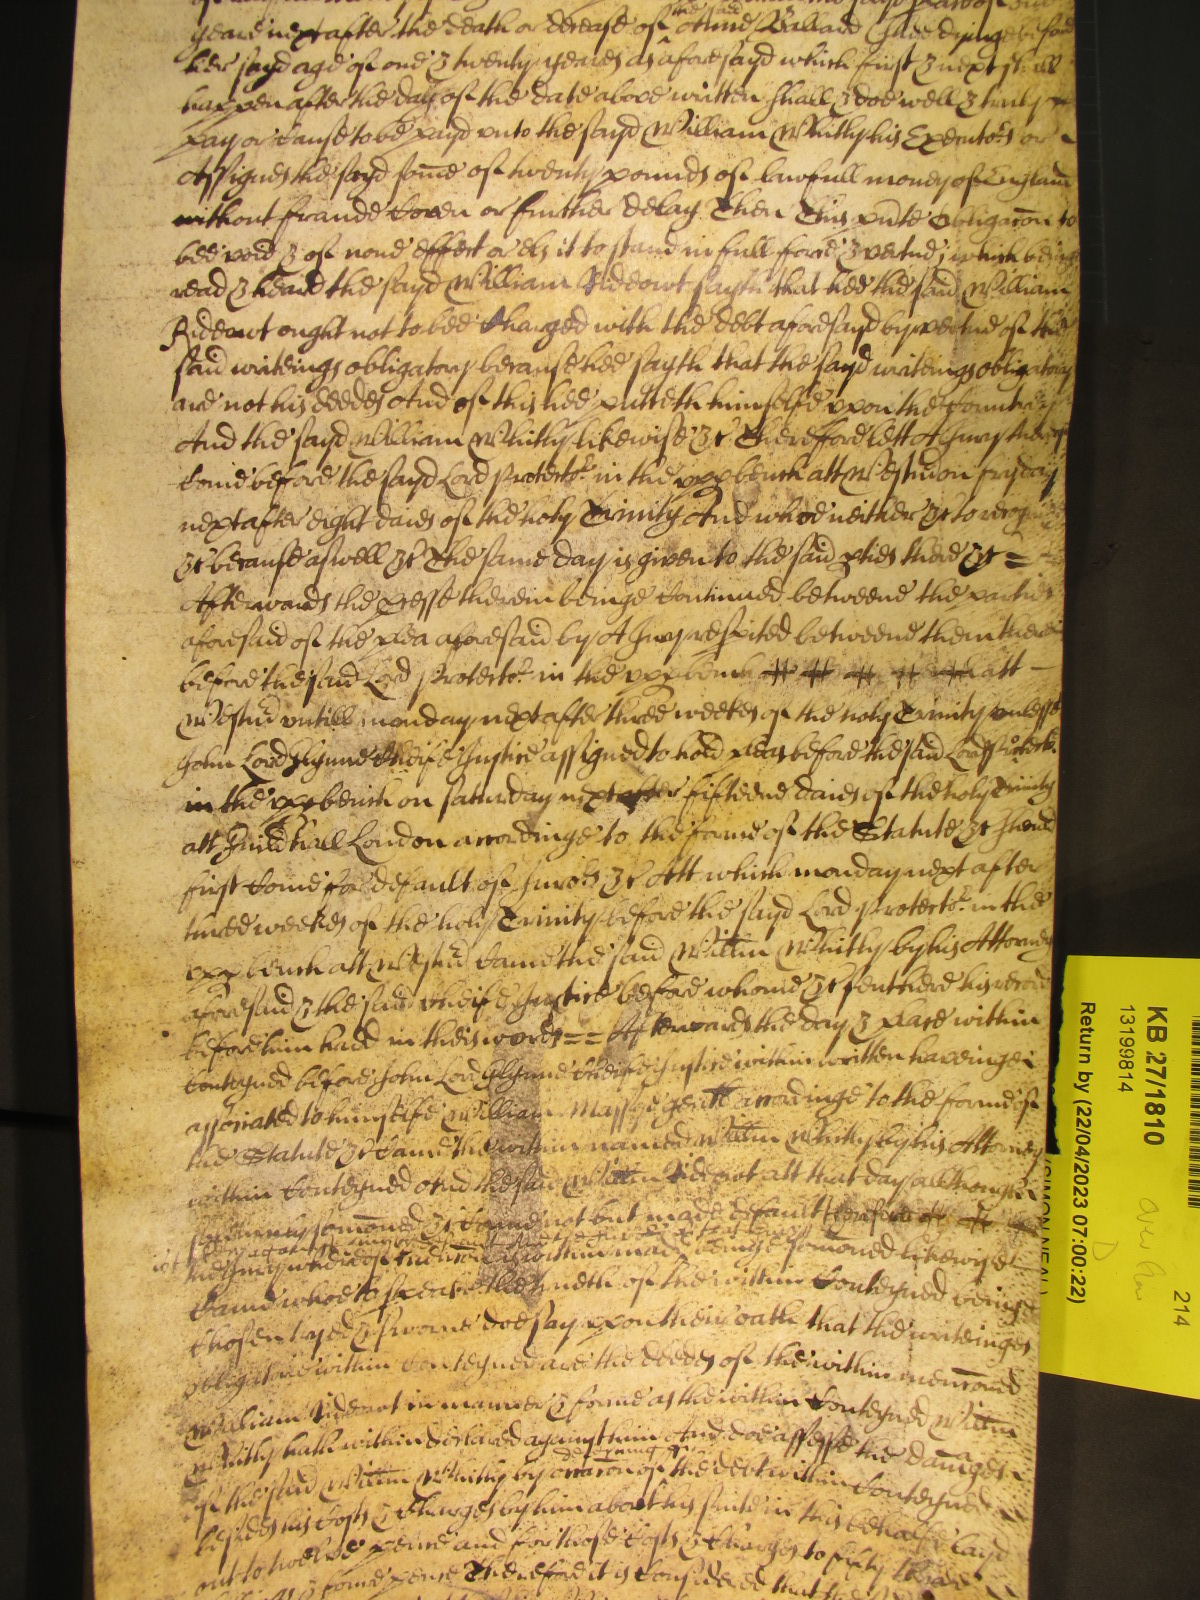 yeare next after the death or decease of the said Anne Ballard shee dying before
her sayd age of one & twenty yeares as aforesayd which first & next shall
happen after the day of the date above written shall & doe well & truly
pay or cause to be payd unto the sayd William Whitly his Executors or
Assignes the sayd some of twenty pounds of lawfull money of England
without fraude Coven or further delay Then This pnte Obligacon to
bee void & of none effect or els it to stand in full force & vertue; which being
read & heard the sayd William Rideowt sayth that hee the said William
Rideowt ought not to bee charged with the debt aforesayd by vertue of the
said writeings obligatory because hee sayth that the sayd writeings obligatory
are not his deedes And of this hee putteth himselfe upon the Countrey
And the sayd William Whitly likewise &c Therefore lett A Jury thereof
come before the sayd Lord Protector in the upp bench att Westm on fryday
next after eight daies of the holy Trinity And whoe neither &c to recog
&c because aswell &c The same day is given to the said pties there &c =
Afterwards the pcesse therein beinge Continued betweene the parties
aforesaid of the plea aforesaid by A Jury respited betweene them therein
before the said Lord Protector in the upp bench att
Westm untill monday next after three weekes of the holy Trinity unlesse
John Lord Glynne Cheife Justice assigned to hold pleas before the said Lord Protector
in the upp bench on saturday next after fifteene daies of the holy Trinity
att Guildhall London accordinge to the forme of the Statute &c should
first Come for default of Jurors &c Att which monday next after
three weekes of the holy Trinity before the sayd Lord Protector in the
upp bench att Westm Came the said Willm Whitly by his Attorney
aforesaid & the said Cheife Justice before whome &c sent here his record
before him hadd in theis words == Afterwards the day & place within
Conteyned before John Lord Glynne Cheife Justice within written haveinge
associated to himselfe William Massye gent accordinge to the forme of
the Statute &c Came the within named Willm Whitly by his Attorney
within Conteyned And the said Willm Rideowt att that day allthough
solemnly somoned &c Came not but made default Therefore
the Jury whereof mencon is within made beinge somoned likewise
Came whoe to speake the truth of the within Conteyned beinge
chosen tryed & sworne doe say upon their oath that the writeinges
obligatorie within Conteyned are the deedes of the within menconed
William Rideowt in manner & forme as the within Conteyned Willm
Whitly hath within declared against him And doe assesse the damages
of the said Willm Whitly by occacon of the deteyning of the debt within Conteyned
besides his Costs & Charges by him about his suite in this behalfe layd
out to twelve pence and for those Costs & Charges to fifty three
& fower pence Therefore it is Considered that the
KB 27/1810
13199814
Return by (22/04/2023 07:00:22)
214
D
(SIMON NEAL)